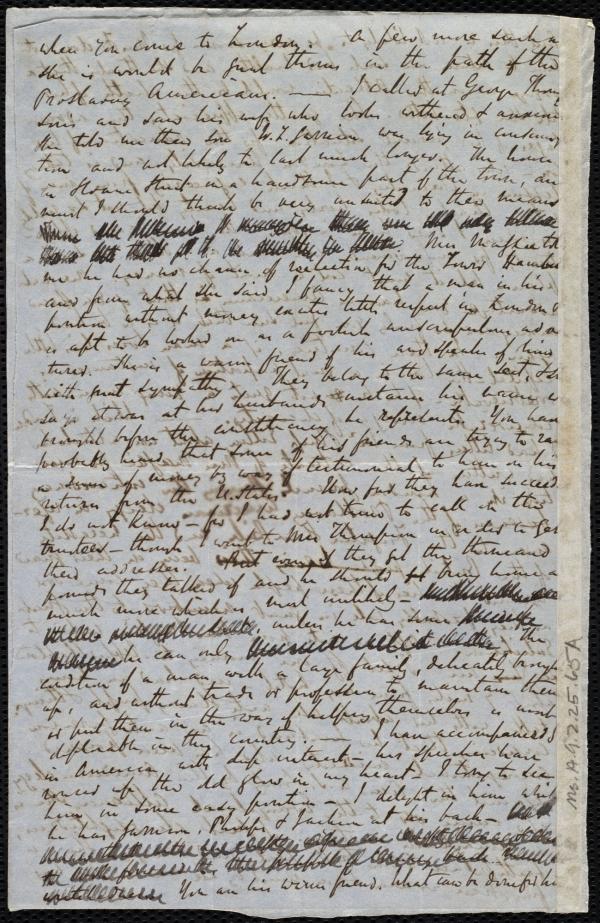 when you come to London. A few more such a
she is would be good thorns in the path of the
Proslavery Americans. — I called at George Thomp
sons and saw his wife who looks withered & anxious
She told me their son W. L. Garrison was lying in consump
tion and not likely to last much longer. The house
in Sloane Street in a handsome part of the town, an
must I should think be very unsuited to their means
Mrs
me he had no chance of reelection for the Tower Hamlets
and from what she said I fancy that a man in his
position without money excites little respect in London &
is apt to be looked on as a foolish unscrupulous adven
turer. She is a warm friend of his and speaks of him
with great sympathy. They belong to the same sect, &
says it was at her husband's instance his name w
brought before the constituency he represents. You have
probably heard that some of his friends are trying to ra
a sum of money by way of testimonial to him on his
return from the U States. How far they have succeed
I do not know — for I had not time to call on the
trustees — though I went to Mrs Thompson in order to get
their addresses. they get the thousand
pounds they talked of and he should bring home a
much more which is most unlikely —
unless he has some
he can only The
condition of a man with a large family, delicately brough
up, and without trade or profession to maintain them
or put them in the way of helping themselves is most
deplorable in this country. — I have accompanied
in America with deep interest — his speeches have
roused up the old glow in my heart. I long to see
him in some easy position — I delight in him whil
he has Garrison, Phillips & Jackson at his back —
You are his warm friend. What can be done for hi
Ms. A.9.2.25.65A